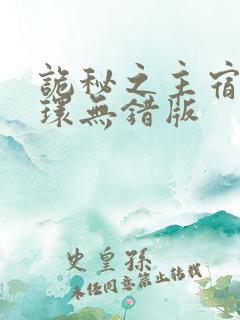 詭秘之主宿
環無錯版
史皇孫
未經同意禁止轉載